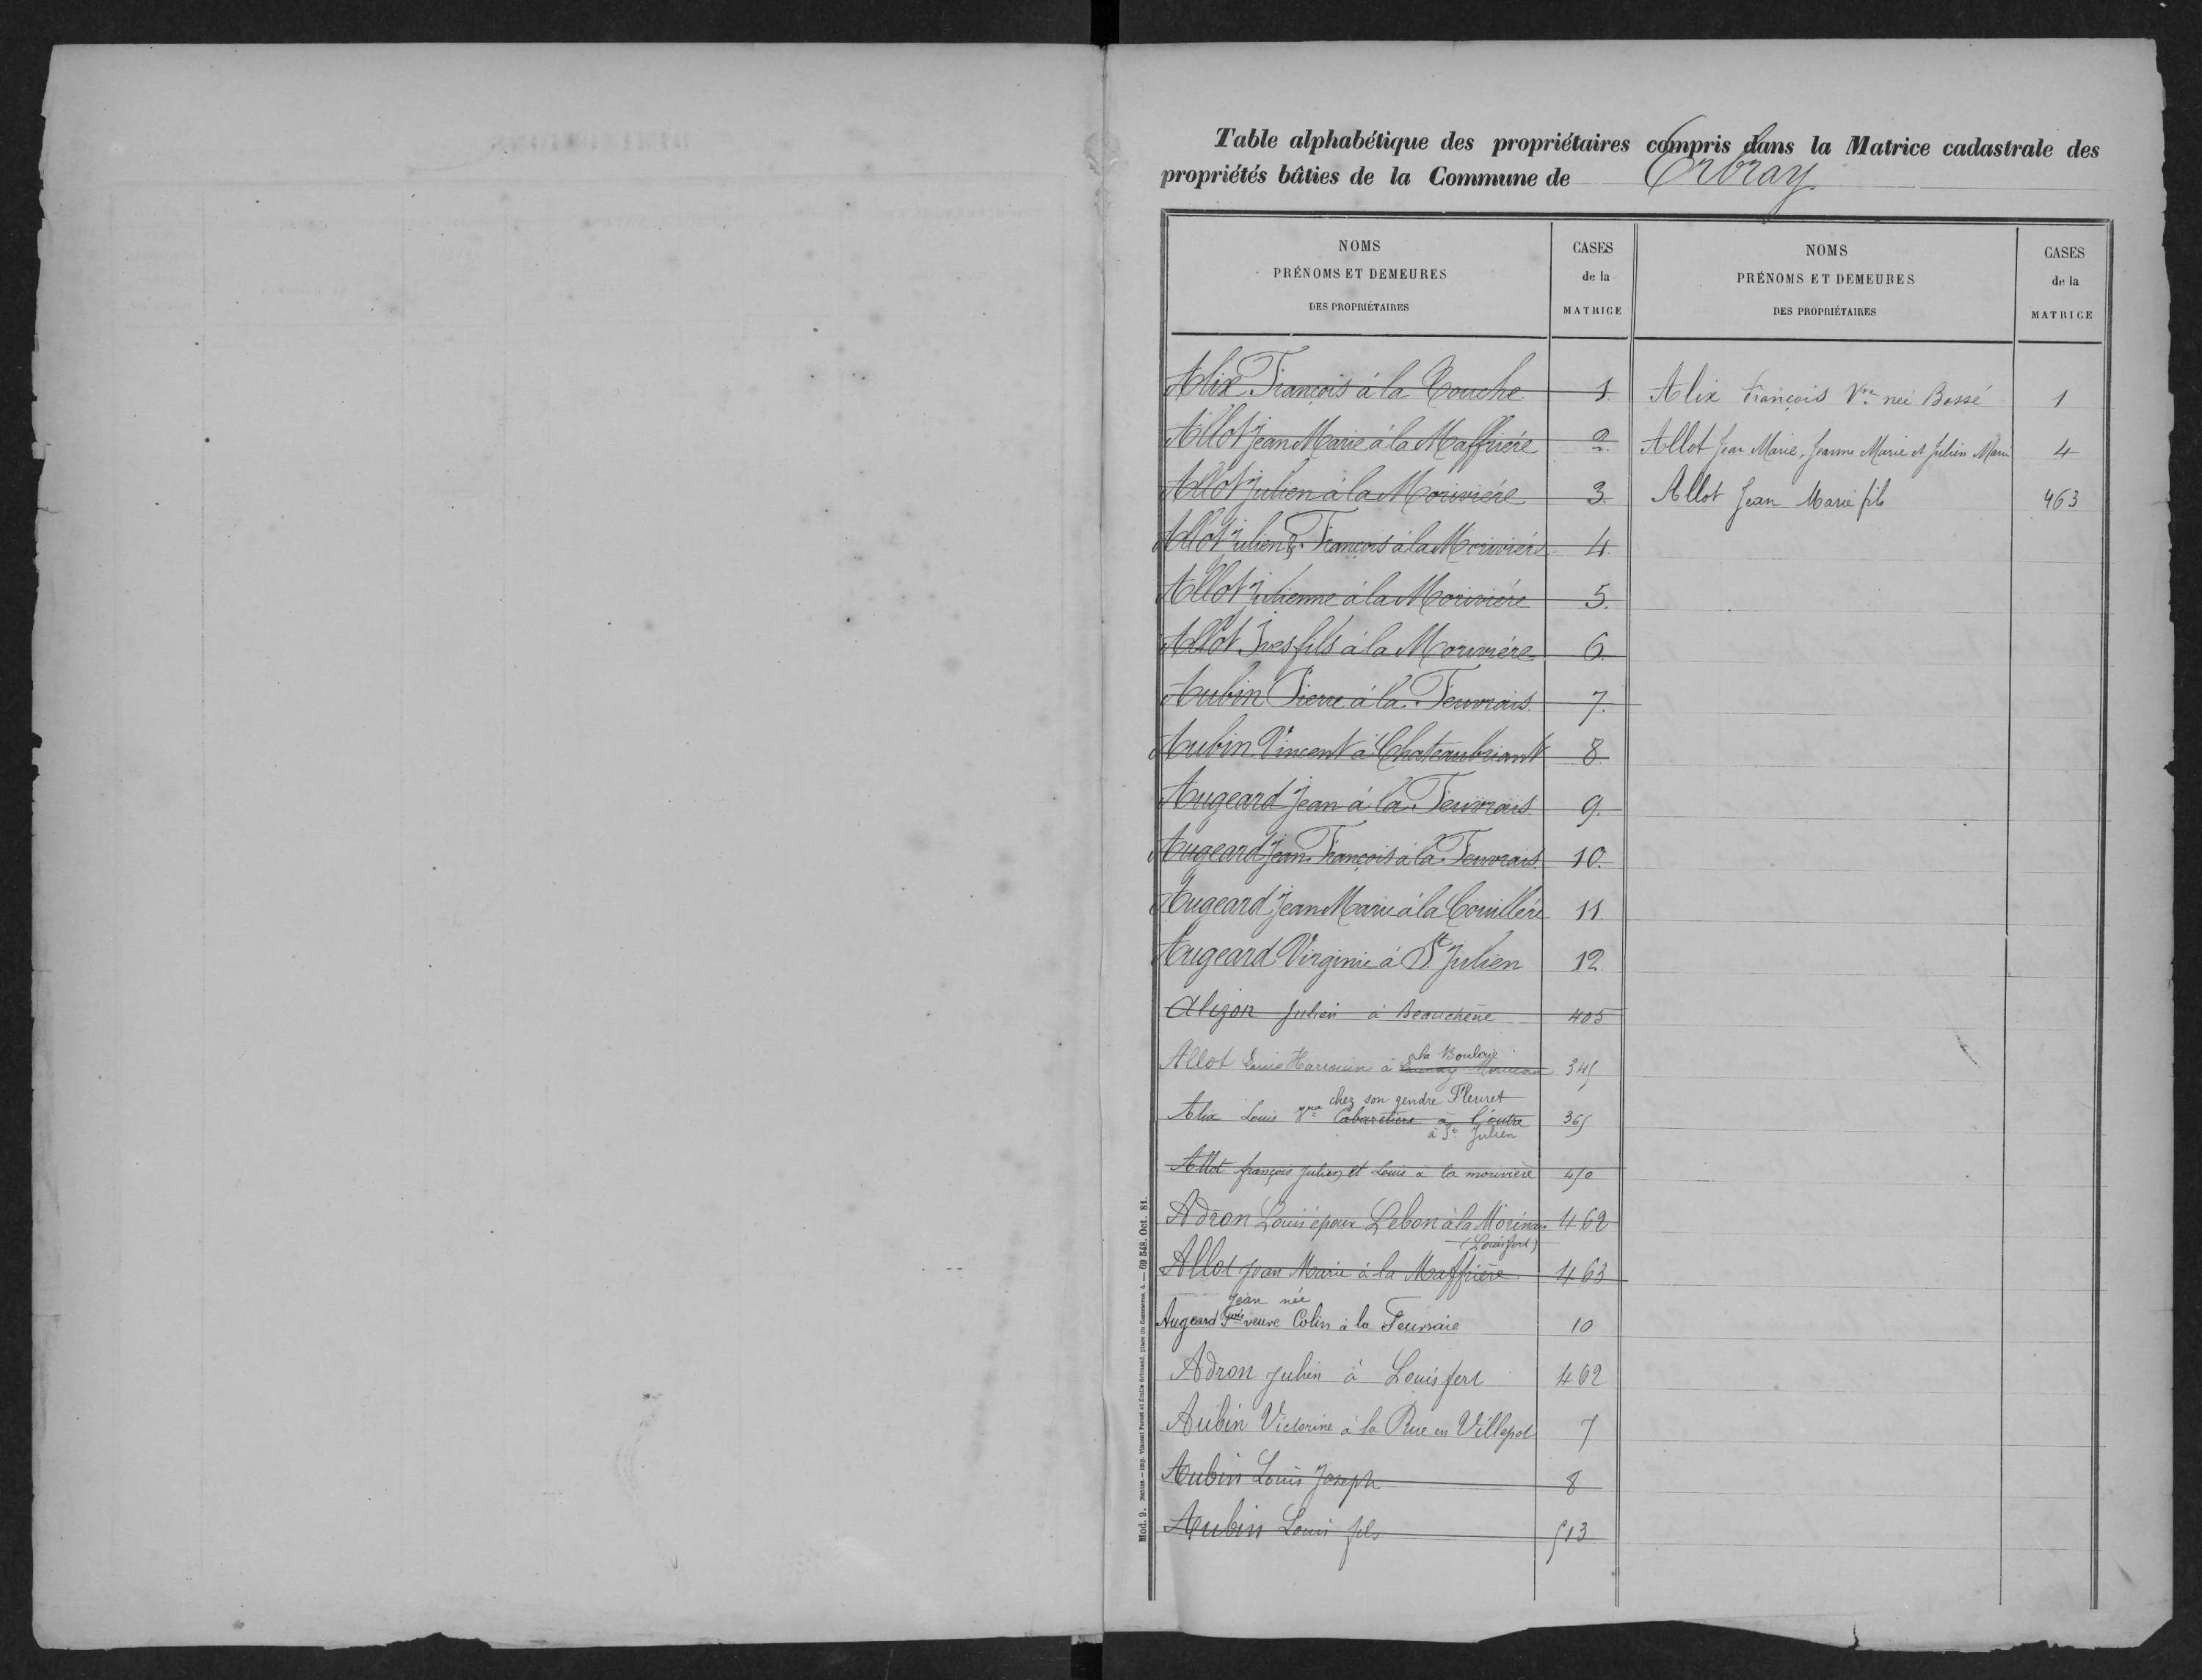 Table alphabétique des propriétaires compris dans la Matrice cadastrale des
propriétés bâties de la Commune de Erbray
NOMS
PRÉNOMS ET DEMEURES
DES PROPRIÉTAIRES
CASES
de la
MATRICE
Alix François à la Touche 1.
Allot Jean Marie à la Maffrière 2.
Allot Julien à la Morivière 3.
Allot Julien François à la Morivière 4.
Allot Julienne à la Morivière 5.
Allot Yves fils à la Morivière 6.
Aubin Pierre à la Feuvrais 7.
Aubin Vincent à Chateaubriant 8.
Augeard Jean à la Feuvrais 9.
Augeard Jean François à la Feuvrais 10.
Augeard Jean Marie à la 11
Augeard Virginie à St Julien 12
Alizon Julien à Beauchêne 405
la Boulaie
Allot Louis à 345
chez son gendre Fleuret
Alix Louis Vve Cabaretière à 365
à St Julien
Allot françois Julien et Louis à la morivière 450
Adron Louis époux Lebon à la Morinais 462
(Louisfert)
Allot Jean Marie à la Maffrière 463
Jean née
Augeard veuve Colin à la Feuvraie 10
Adron Julien à Louisfert 462
Aubin Victorine à la Rue en Villepot 7
Aubin Louis Joseph 8
Aubin Louis fils 513
NOMS
PRÉNOMS ET DEMEURES
DES PROPRIÉTAIRES
CASES
de la
MATRICE
Alix François Vve née Bossé 1
Allot Jean Marie, Jeanne Marie et Julien Marie 4
Allot Jean Marie fils 463
Mod. 9.
69 548. Oct. 81.